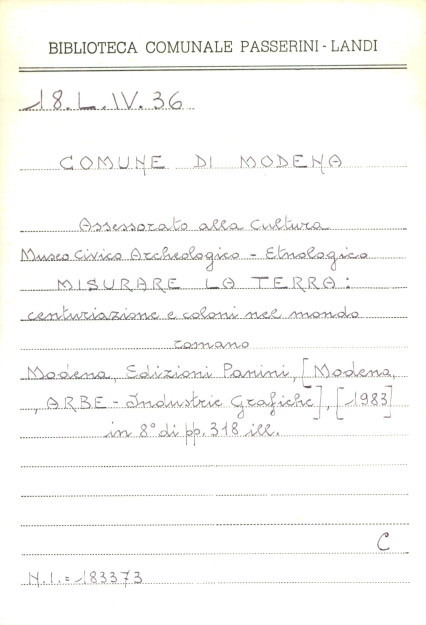 BIBLIOTECA COMUNALE PASSERINI - LANDI
18.L.IV.36
COMUNE DI MODENA
Assessorato alla Cultura
Museo Civico Archeologico - Etnologico
MISURARE LA TERRA:
centuriazione e coloni nel mondo
romano
Modena, Edizioni Panini, [Modena,
, ARBE - Industrie Grafiche], [1983]
in 8° di pp. 318 ill.
C
N.I. = 183373